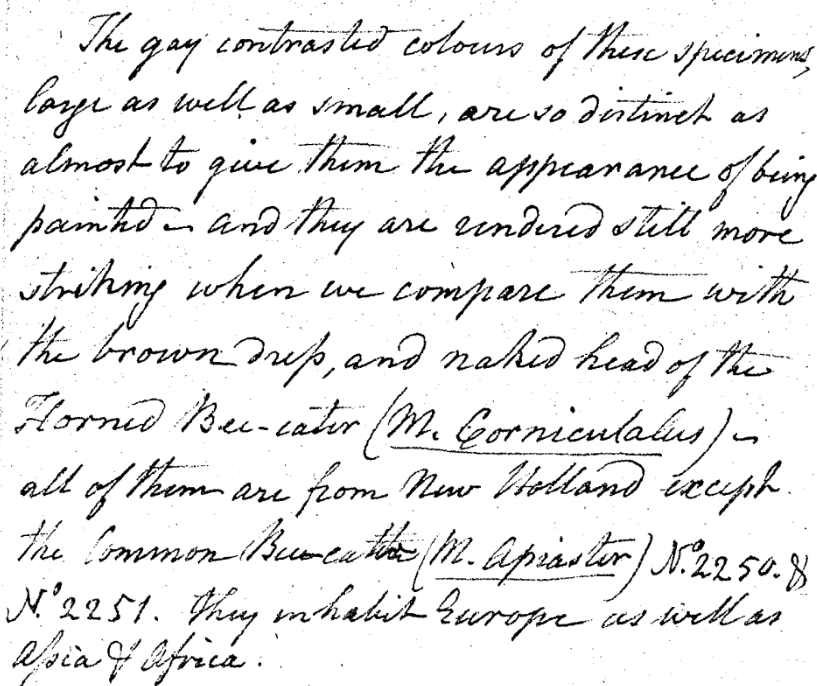 The gay contrasted colours of these specimens,
large as well as small, are so distinct as
almost to give them the appearance of being
painted - and they are rendered still more
striking when we compare them with
the brown dress, and naked head of the
Horned Bee-eater (M. Corniculatus) -
all of them are from New Holland except
the Common Bee-eater (M. Apiaster) No. 2250. &
No 2251. They inhabit Europe as well as
Asia & Africa.